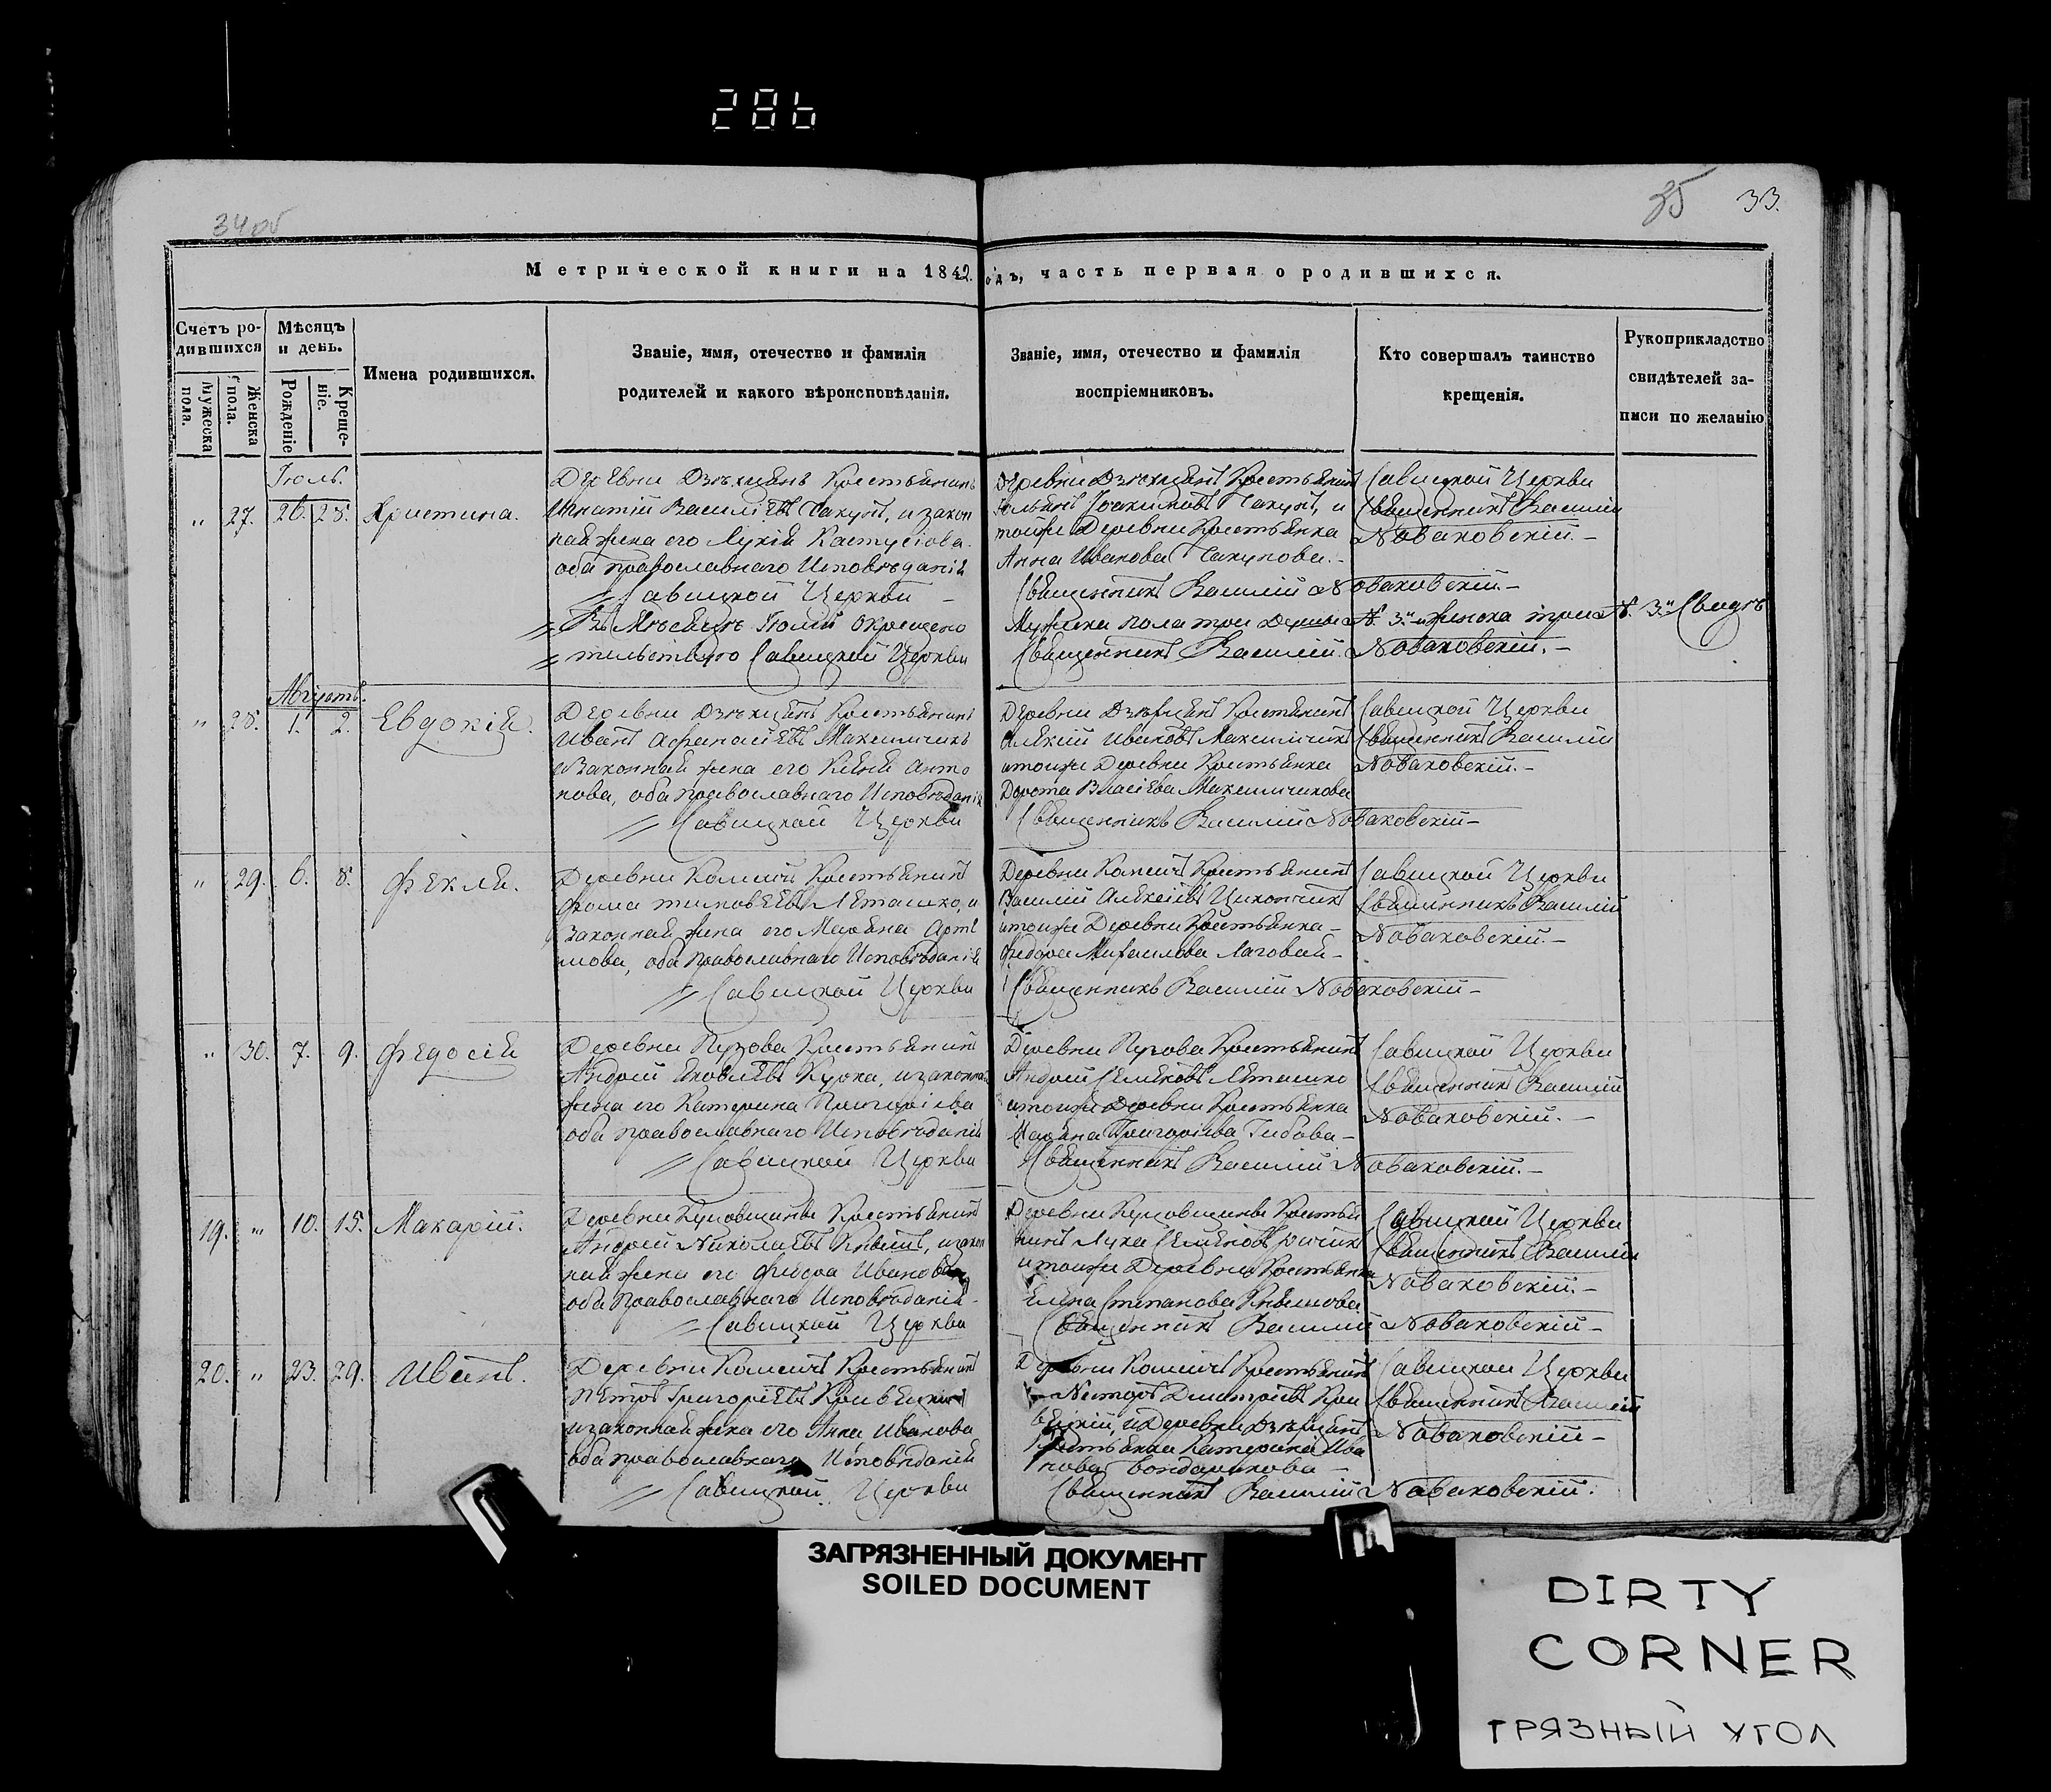 286
34об
35 33.
Метрической книги на 1842. одъ, часть первая о родившихся.
Счетъ ро-
дившихся
Мужеска
пола.
Женска
пола.
Мѣсяцъ
и день.
Рожденіе
Креще-
ніе.
Имена родившихся.
Званіе, имя, отечество и фамилія
родителей и какого вѣроисповѣданія.
Званіе, имя, отечество и фамилія
воспріемниковъ.
Кто совершалъ таинство
крещенія.
Рукоприкладство
свидѣтелей за-
писи по желанію
Іюль.
" 27. 26. 28. Христина.
Деревни Крестьянинъ
Игнатій Василіевъ Такунъ, и закон
ная жена его Лукія
оба православнаго Исповѣданія
Савицкой Церкви
Въ Мѣсяцѣ Іюлѣ окрещено
тельствую Савицкой Церкви
Деревни Крестьянинъ
Іоакимовъ Такунъ, и
тойже Деревни Крестьянка
Анна Иванова Такунова.
Священникъ Василій Новаковскій.
Мужеска пола три № 3. и женска три № 3. Свидѣ
Священникъ Василій Новаковскій.
Савицкой Церкви
Священникъ Василій
Новаковскій.
Августъ.
" 28. 1. 2. Евдокія.
Деревни Крестьянинъ
Иванъ Максимчикъ
и Законная жена его Анто
нова, оба православнаго Исповѣданія
Савицкой Церкви
Деревни Крестьянинъ
Алексій Ивановъ Максимчикъ
и тойже Деревни Крестьянка
Дорота Власіева Максимчикова
Священникъ Василій Новаковскій
Савицкой Церкви
Священникъ Василій
Новаковскій.
" 29. 6. 8. Фекла.
Деревни Крестьянинъ
Фома Тимовеевъ Леташко, и
Законная жена его Марьяна Арте
мова, оба Православнаго Исповѣданія
Савицкой Церкви
Деревни Крестьянинъ
Василій Алексіевъ
и тойже Деревни Крестьянка
Федора Михаилова Лаговая
Священникъ Василій Новаковскій
Савицкой Церкви
Священникъ Василій
Новаковскій.
" 30. 7. 9. Федосія
Деревни Пузова Крестьянинъ
Андрей Яковлевъ Курка, и законная
жена его Катерина Григоріева
оба православнаго Исповѣданія
Савицкой Церкви
Деревни Пузова Крестьянинъ
Андрей Семеновъ Леташко
и тойже Деревни Крестьянка
Марьяна Григоріева
Священникъ Василій Новаковскій.
Савицкой Церкви
Священникъ Василій
Новаковскій.
19. " 10. 15. Макарій.
Деревни Крестьянинъ
Андрей Николаевъ и закон
ная жена его Федора Иванова
оба Православнаго Исповѣданія
Савицкой Церкви
Деревни Крестья
нинъ Лука Семеновъ
и тойже Деревни Крестьянка
Елена Степанова
Священникъ Василій Новаковскій
Савицкой Церкви
Священникъ Василій
Новаковскій.
20. " 23. 29. Иванъ.
Деревни Крестьянинъ
Петръ Григоріевъ
и законная жена его Анна Иванова
оба православнаго Исповѣданія
Савицкой Церкви
Деревни Крестьянинъ
Дмитріевъ
и Деревни
Крестьянка Катерина Ива
нова Бондарикова
Священникъ Василій Новаковскій.
Савицкой Церкви
Священникъ Василій
Новаковскій
ЗАГРЯЗНЕННЫЙ ДОКУМЕНТ
SOILED DOCUMENT
DIRTY
CORNER
ГРЯЗНЫЙ УГОЛ